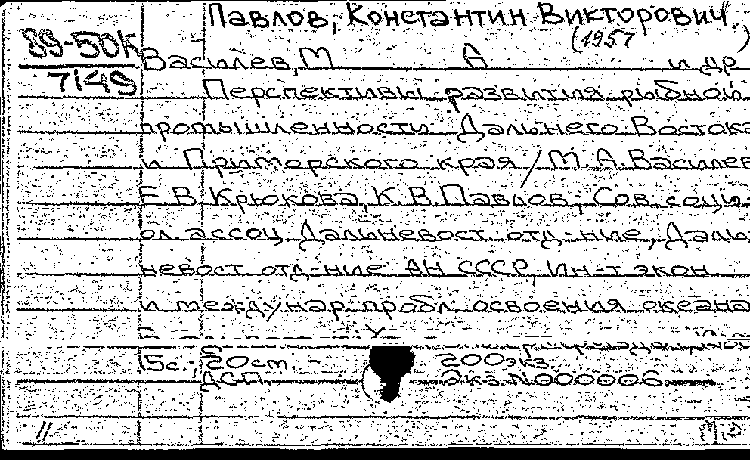 Павлов, Константин Викторович.
(1957 )
89-50К
7149
Василев, М А и др
Перспективы развития рыбной
промышленности Дальнего Восток
и Приморского края / М. А. Василев
Е. В. Крюкова, К. В. Павлов; Сов. соци-
ол. ассоц. Дальневост. отд-ние, Даль-
невост. отд-ние АН СССР, Ин-т экон.
и междунар. пробл. освоения океана
15с.; 20см 200экз.
ДСП Экз. N000006